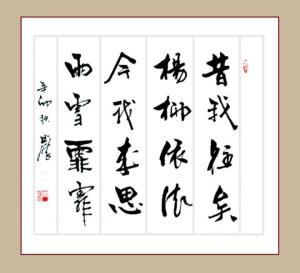 昔我往矣
楊柳依依
今我来思
雨雪霏霏
辛卯秋